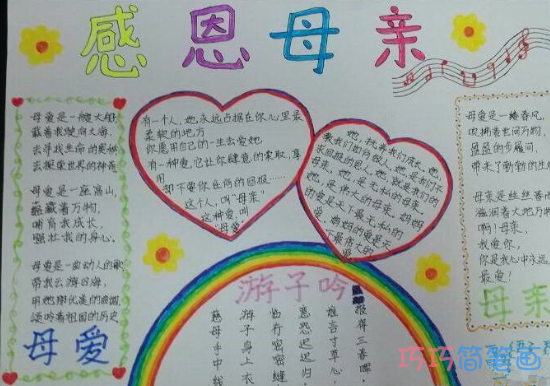 感恩母亲
母爱是一艘大船
载着我驶向大海，
去寻找生命的奥秘
去探索世界的神奇
母爱是一座高山，
蕴藏着万物，
哺育我成长，
强壮我的身心。
母爱是一曲动人的歌
带我去游四海，
用她那优美的曲调
谱吟着祖国的历史
母爱
有一个人，她永远占据在你心里最
柔软的地方
你愿用自己的一生去爱她
有一种爱，它让你肆意的索取，享
用
却不要你任何的回报……
这个人，叫"母亲"
这种爱，叫
"母爱"
她，抚养我们成长，她，
母亲。她，是无私的母亲
她，是伟大的母亲。妈妈
的爱是天下最无私的
爱，妈妈的爱是天
下最伟大的
爱。
游子吟
慈母手中线
游子身上衣
临行密密缝
意恐迟迟归
谁言寸草心
报得三春晖
母爱是一缕春风，
吹拂着世间万物，
带来了勃勃的生
母亲是丝丝春雨
滋润着大地万物
啊！母亲，
我爱你，
你是我心中永远
最爱！
母亲
巧巧简笔画